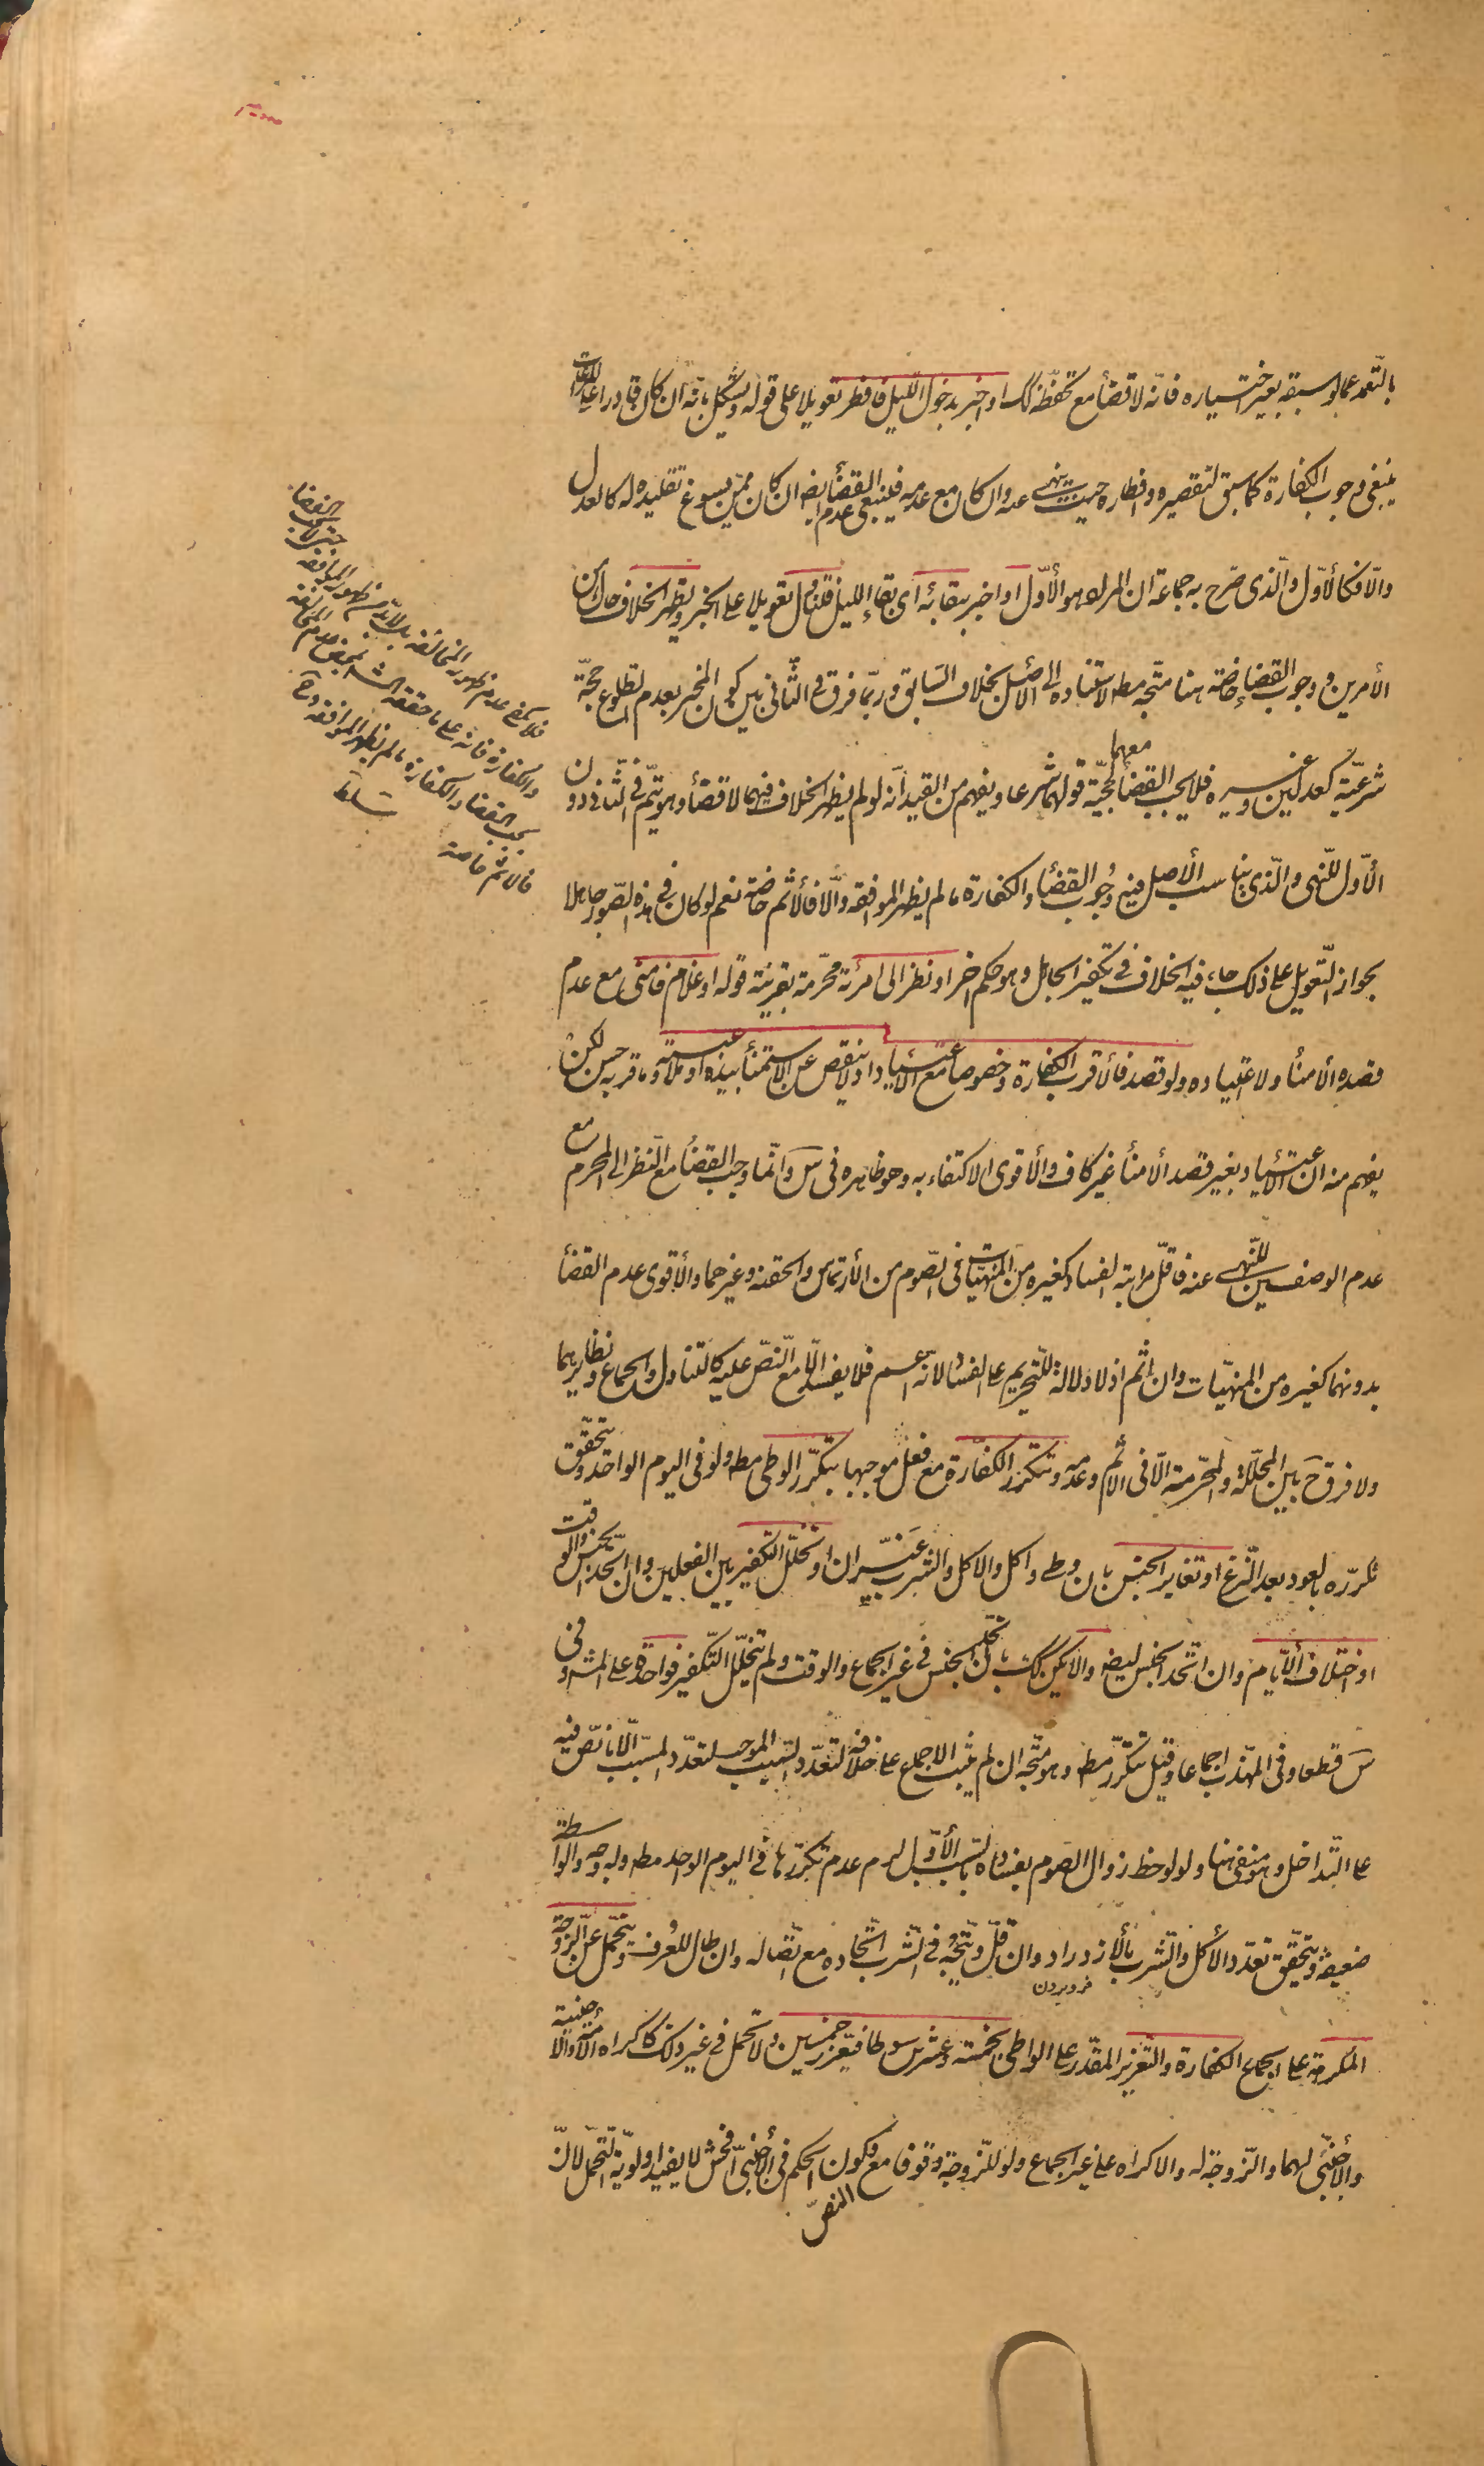 بالتعمد عما لو سبقه بغير اختياره فانه لا قضأ مع تحفظه كك او اخبر بدخول الليل فافطر تعويلا على قوله ويشكل بانه ان كان قادرا على المراعات
ينبغى وجوب الكفارة كما سبق لتقصيره وافطاره حيث ينهى عنه وان كان مع عدمه فلينبغى عدم القضأ ايضه ان كان ممن يسوغ تقليده له كالعدل
والا فكالأول والذى صرح به جماعة ان المراد هو الأول او اخبر ببقائه اى بقاء الليل فتناول تعويلا على الخبر ويظهر الخلاف حال من
الأمرين ووجوب القضاء خاصة هنا متجه مطه لاستناده الى الأصل بخلاف السابق وربما فرق فى الثانى بين كون المخبر بعدم الطلوع حجة
شرعية كعدلين وغيره فلا يجب القضأ معهما لحجية قولهما شرعا ويفهم من القيد انه لو لم يظهر الخلاف فيهما لا قضأ وهو يتم فى الثانى دون
الأول للنهى والذى يناسب الأصل فيه وجوب القضأ والكفارة ما لم يظهر الموافقة والا فالأثم خاصة نعم لو كان فى هذه الصور جاهلا
بجواز التعويل على ذلك جاء فيه الخلاف فى تكفير الجاهل وهو حكم اخر او نظر الى امرئة محرمة بقرينة قوله او غلام فامنى مع عدم
قصده الأمنأ ولا اعتياده ولو قصد فالأقرب الكفارة وخصوصا مع الأعتياد اذ لا ينقص عن الاستمنأ بيده او ملاعبته وما قربه حسن لكن
يفهم منه ان الأعتياد بغير قصد الأمنأ غير كاف والأقوى الاكتفاء به وهو ظاهره فى س وانما وجب القضأ مع النظر الى المحرم مع
عدم الوصفين للنهى عنه فاقل مراتبه الفساد كغيره من المنهيات فى الصوم من الأرتماس والحقنه وغيرهما والأقوى عدم القضأ
بدونهما كغيره من المنهيات وان اثم اذ لا دلالة للتحريم على الفساد لانه اعم فلا يفسد الا مع النص عليه كالتناول والجماع ونظايرهما
ولا فرق ح بين المحللة والمحرمة الا فى الاثم وعدمه وتتكرر الكفارة مع فعل موجبها بتكرر الوطى مطه ولو فى اليوم الواحد ويتحقق
تكرره بالعود بعد النزع او تغاير الجنس بان وطى واكل والاكل والشرب غيران او تخلل التكفير بين الفعلين وان اتحد الجنس والوقت
او اختلاف الأيام وان اتحد الجنس ايضه والا يكن كك بان اتحد الجنس فى غير الجماع والوقت ولم يتخلل التكفير فواحدة على المشه وفى
س قطعا وفى المهذب اجماعا وقيل تتكرر مطه وهو متجه ان لم يثبت الاجماع على خلافه لتعدد السبب الموجب لتعدد المسبب الا ما نص فيه
على التداخل وهو منفى هنا ولو لوحظ زوال الصوم بفساده بالسبب الأول لزم عدم تكررها فى اليوم الواحد مطه وله وجه والواسطة
ضعيفة ويتحقق تعدد الأكل والشرب بالأزدراد وان قل ويتجه فى الشرب اتحاده مع اتصاله وان طال للعرف ويتحمل عن الزوجة
فرو بردن
المكرهة على الجماع الكفارة والتعزير المقدر على الواطى بخمسة وعشرين سوطا فيعزر خمسين ولا تحمل فى غير ذلك كاكراه الأمة والأجنبية
والأجنبى لهما والزوجة له والاكراه على غير الجماع ولو للزوجة وقوفا مع النص وكون الحكم فى الأجنبى افحش لا يفيد اولوية التحمل لان
فلا يكفى عدم ظهور المخالفة بل لابد من ظهور الموافقة حتى لا يجب القضأ
والكفارة فانه على ما حققه الشه بمحض عدم المخالفة
يجب القضا والكفارة ما لم يظهر الموافقة وح
فالاثم خاصة
سلطا